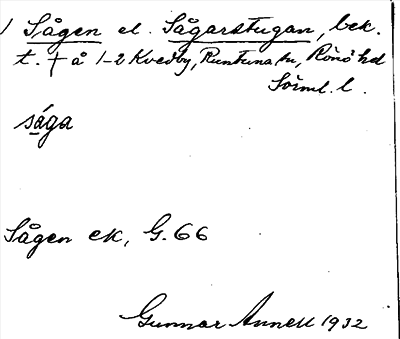 1 Sågen el. Sågarstugan, bek.
t. † å 1-2 Kvedby, Runtuna sn, Rönö hd
Sörml. l.
såga
Sågen ek, G. 66
Gunnar Annell 1932